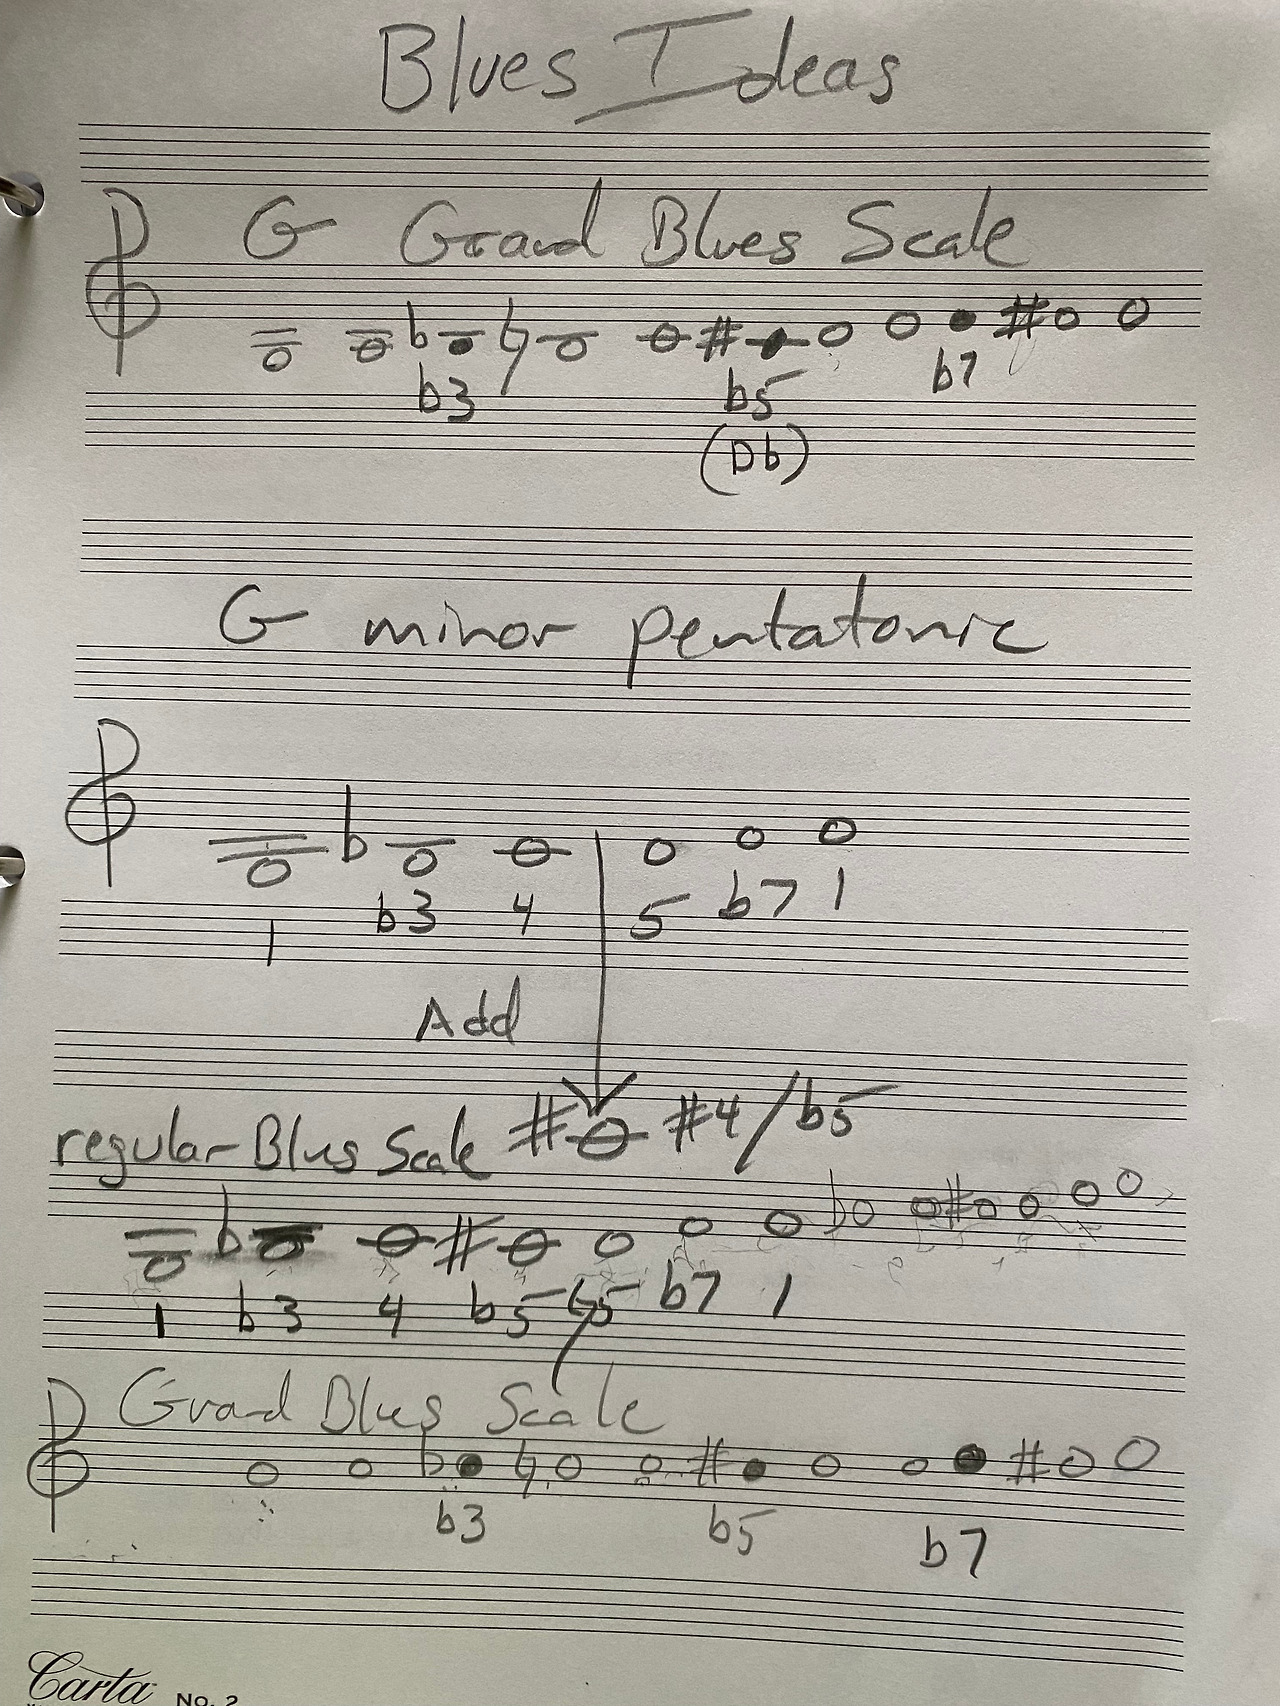 Blues Ideas
G Grand Blues Scale
b3 b5 b7
(Db)
G minor pentatonic
1 b3 4 5 b7 1
Add
regular Blues Scale #4/b5
1 b3 4 b5 ♮5 b7 1
Grand Blues Scale
b3 b5 b7
Carta No. 2